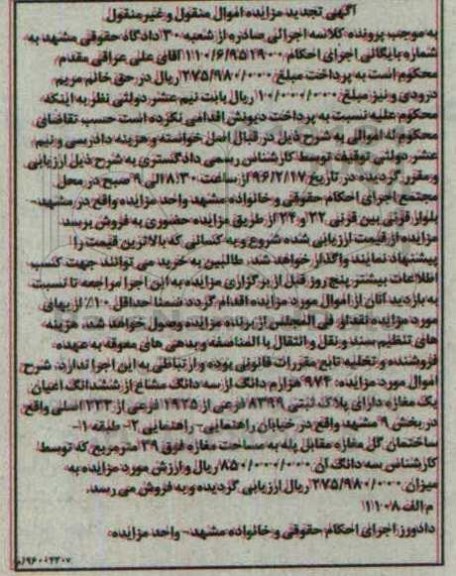 آگهی تجدید مزایده اموال منقول و غیر منقول
به موجب پرونده کلاسه اجرائی صادره از شعبه ۳۰ دادگاه حقوقی مشهد به
شماره بایگانی اجرای احکام ۱۱۰/۶/۹۵۱۹۰۰ آقای علی عراقی مقدم
محکوم است به پرداخت مبلغ ۲۷۵/۹۸۰/۰۰۰ ریال در حق خانم مریم
درودی و نیز مبلغ ۱۰/۰۰۰/۰۰۰ ریال بابت نیم عشر دولتی نظر به اینکه
محکوم علیه نسبت به پرداخت دیونش اقدامی نکرده است حسب تقاضای
محکوم له اموالی به شرح ذیل در قبال اصل خواسته و هزینه دادرسی و نیم
عشر دولتی توقیف توسط کارشناس رسمی دادگستری به شرح ذیل ارزیابی
و مقرر گردیده در تاریخ ۹۶/۲/۱۷ از ساعت ۸:۳۰ الی ۹ صبح در محل
مجتمع اجرای احکام حقوقی و خانواده مشهد واحد مزایده واقع در مشهد-
بلوار قرنی بین قرنی ۲۲ و ۲۴ از طریق مزایده حضوری به فروش برسد.
مزایده از قیمت ارزیابی شده شروع و به کسانی که بالاترین قیمت را
پیشنهاد نمایند واگذار خواهد شد. طالبین به خرید می توانند جهت کسب
اطلاعات بیشتر پنج روز قبل از برگزاری مزایده به این اجرا مراجعه تا نسبت
به بازدید آنان از اموال مورد مزایده اقدام گردد ضمنا حداقل ۱۰٪ از بهای
مورد مزایده نقدا و فی المجلس از برنده مزایده وصول خواهد شد. هزینه
های تنظیم سند و نقل و انتقال بالمناصفه و بدهی های معوقه به عهده
فروشنده و تخلیه تابع مقررات قانونی بوده و ارتباطی به این اجرا ندارد. شرح
اموال مورد مزایده: ۹۷۴ هزارم دانگ از سه دانگ مشاع از ششدانگ اعیان
یک مغازه دارای پلاک ثبتی ۸۳۹۹ فرعی از ۱۹۲۵ فرعی از ۲۳۲ اصلی واقع
در بخش ۹ مشهد واقع در خیابان راهنمایی- راهنمایی ۲- طبقه ۱-
ساختمان گل مغازه مقابل پله به مساحت مغازه فوق ۳۹ متر مربع که توسط
کارشناس سه دانگ آن ۸۵۰/۰۰۰/۰۰۰ ریال و ارزش مورد مزایده به
میزان ۲۷۵/۹۸۰/۰۰۰ ریال ارزیابی گردیده و به فروش می رسد.
م الف ۱۱۰۸
دادورز اجرای احکام حقوقی و خانواده مشهد- واحد مزایده